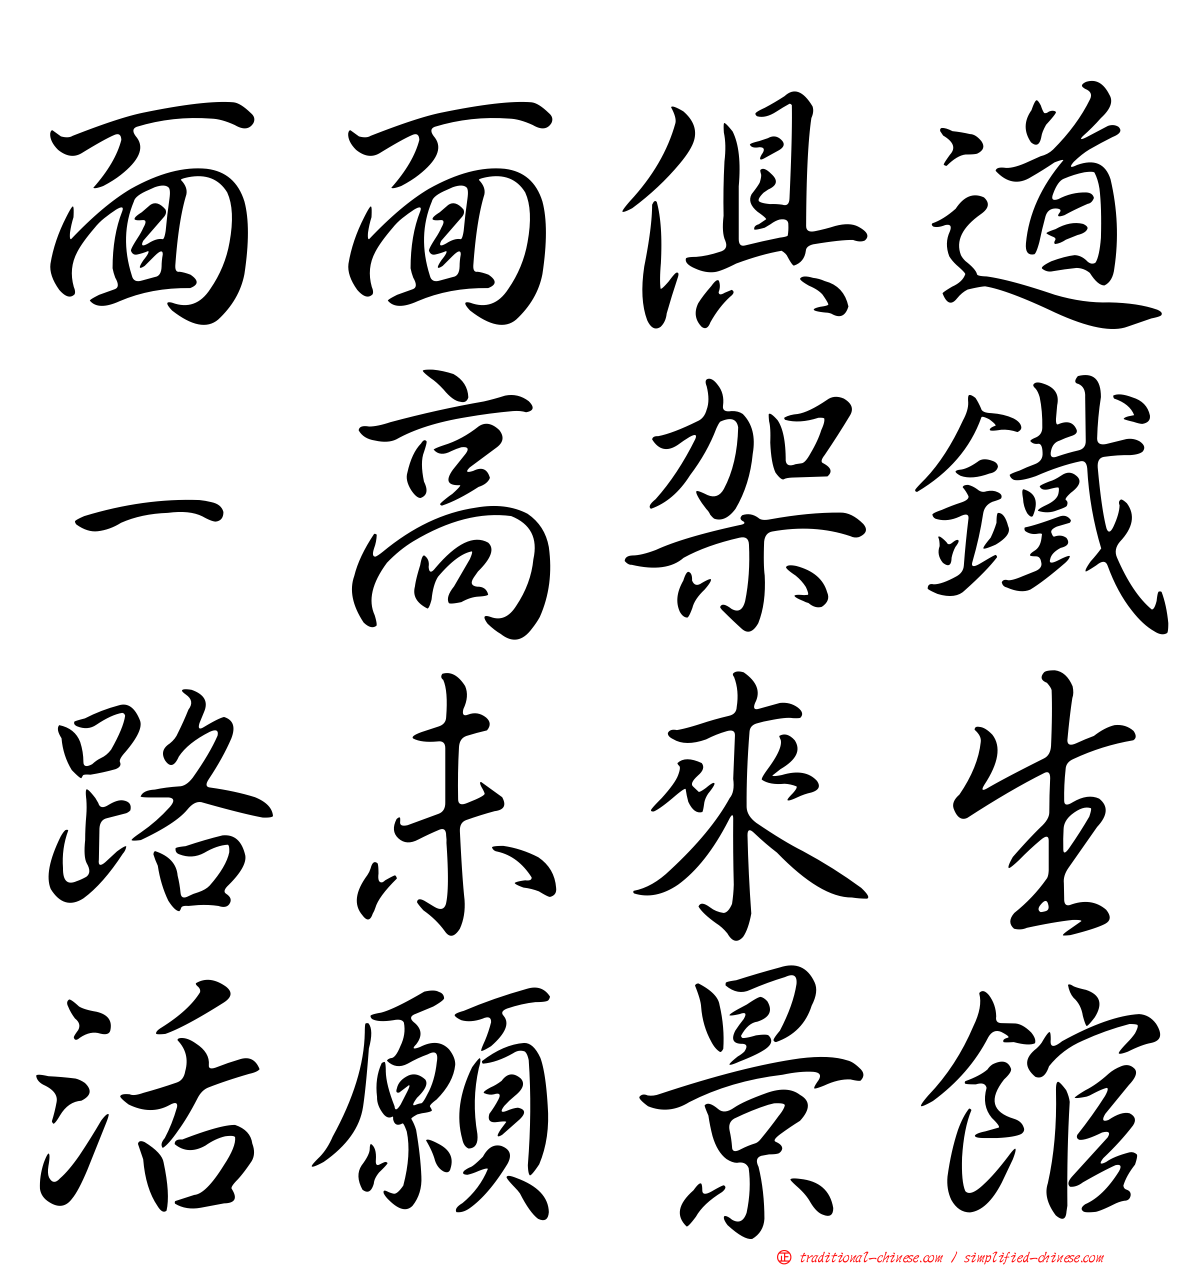 面面俱道
一高架鐵
路未來生
活願景館
正 traditional-chinese.com / simplified-chinese.com